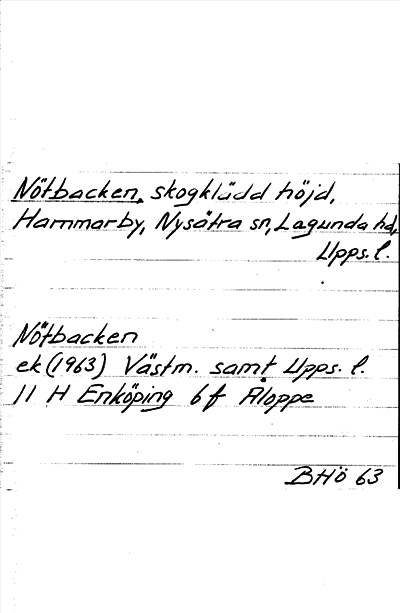 Nötbacken, skogklädd höjd,
Hammarby, Nysätra sn, Lagunda hd,
Upps. l.
Nötbacken
ek (1963) Västm. samt Upps. l.
11 H Enköping 6 f Åloppe
BHö 63